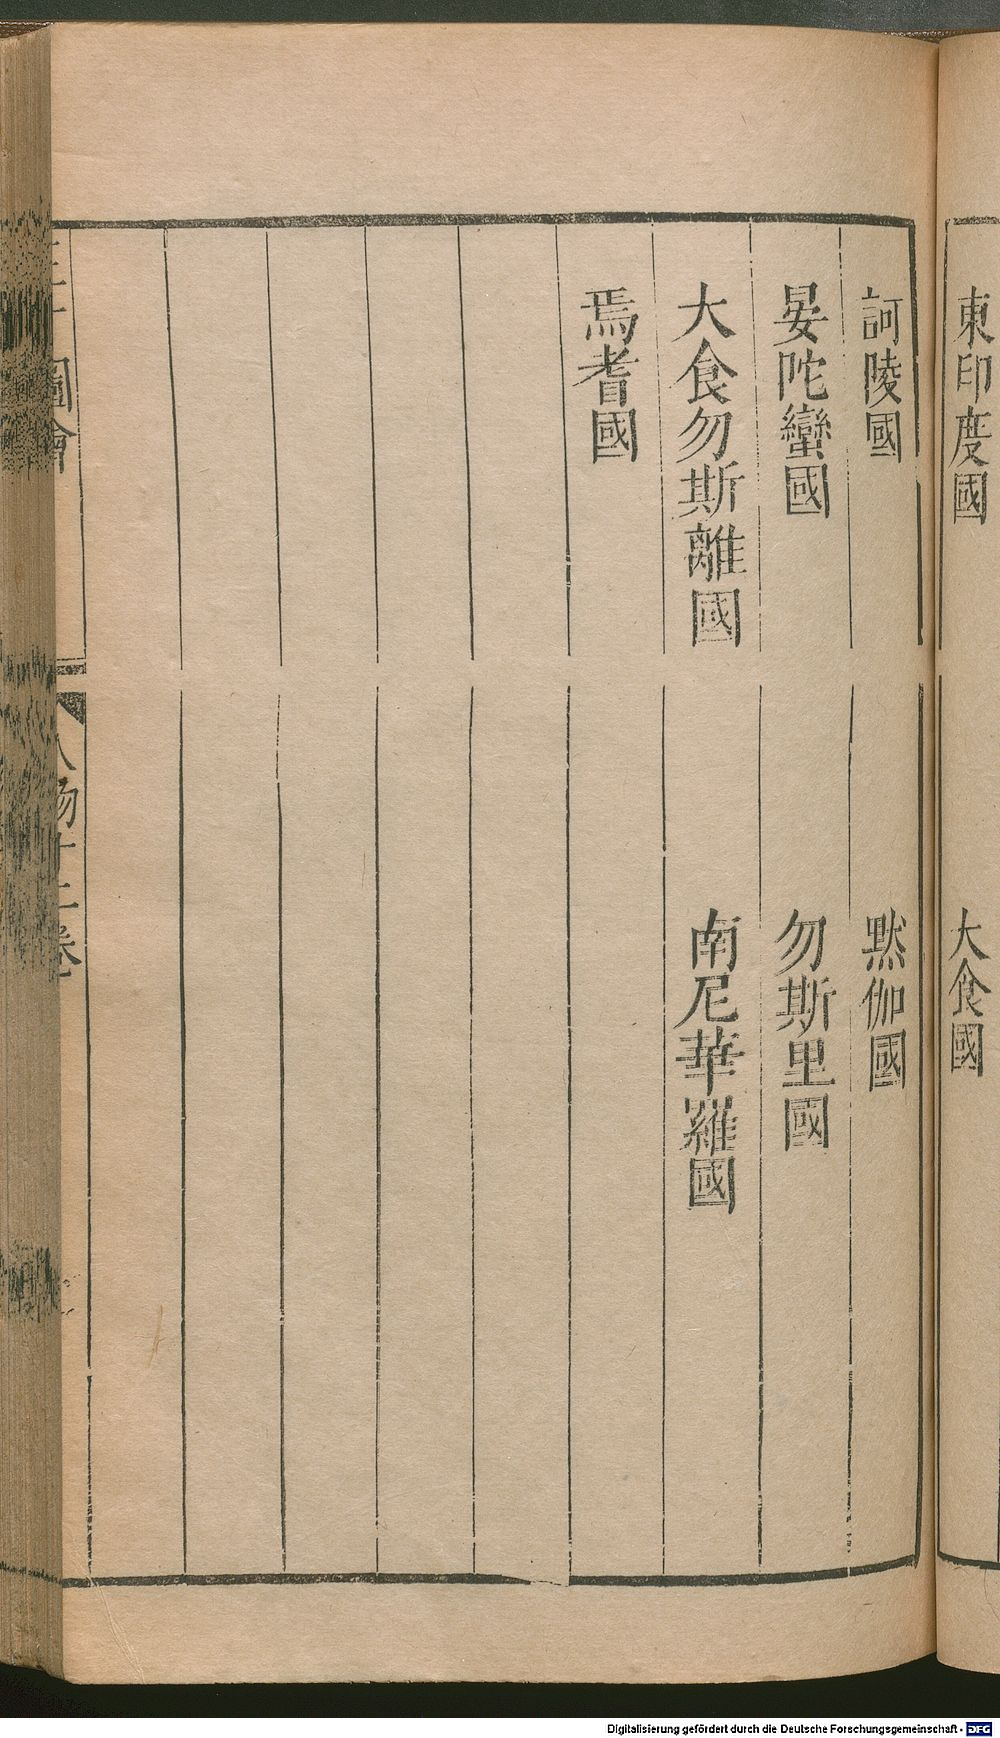 東印度國
大食國
訶陵國
默伽國
晏陀蠻國
勿斯里國
大食勿斯離國
南尼華羅國
焉耆國
三才圖會
人物十二卷
Digitalisierung gefördert durch die Deutsche Forschungsgemeinschaft - DFG